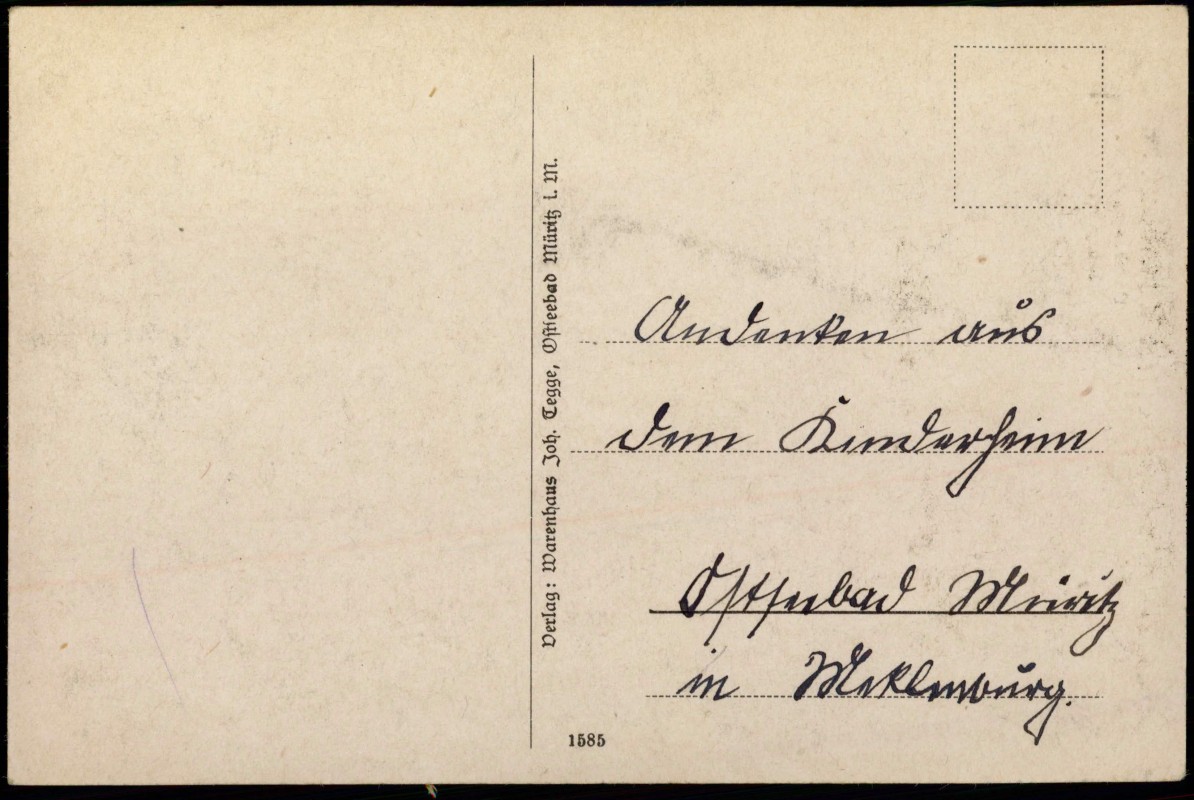 Verlag: Warenhaus Joh. Tegge, Ostseebad Müritz i. M.
Andenken aus
dem Kinderheim
Ostseebad Müritz
in Meklenburg.
1585